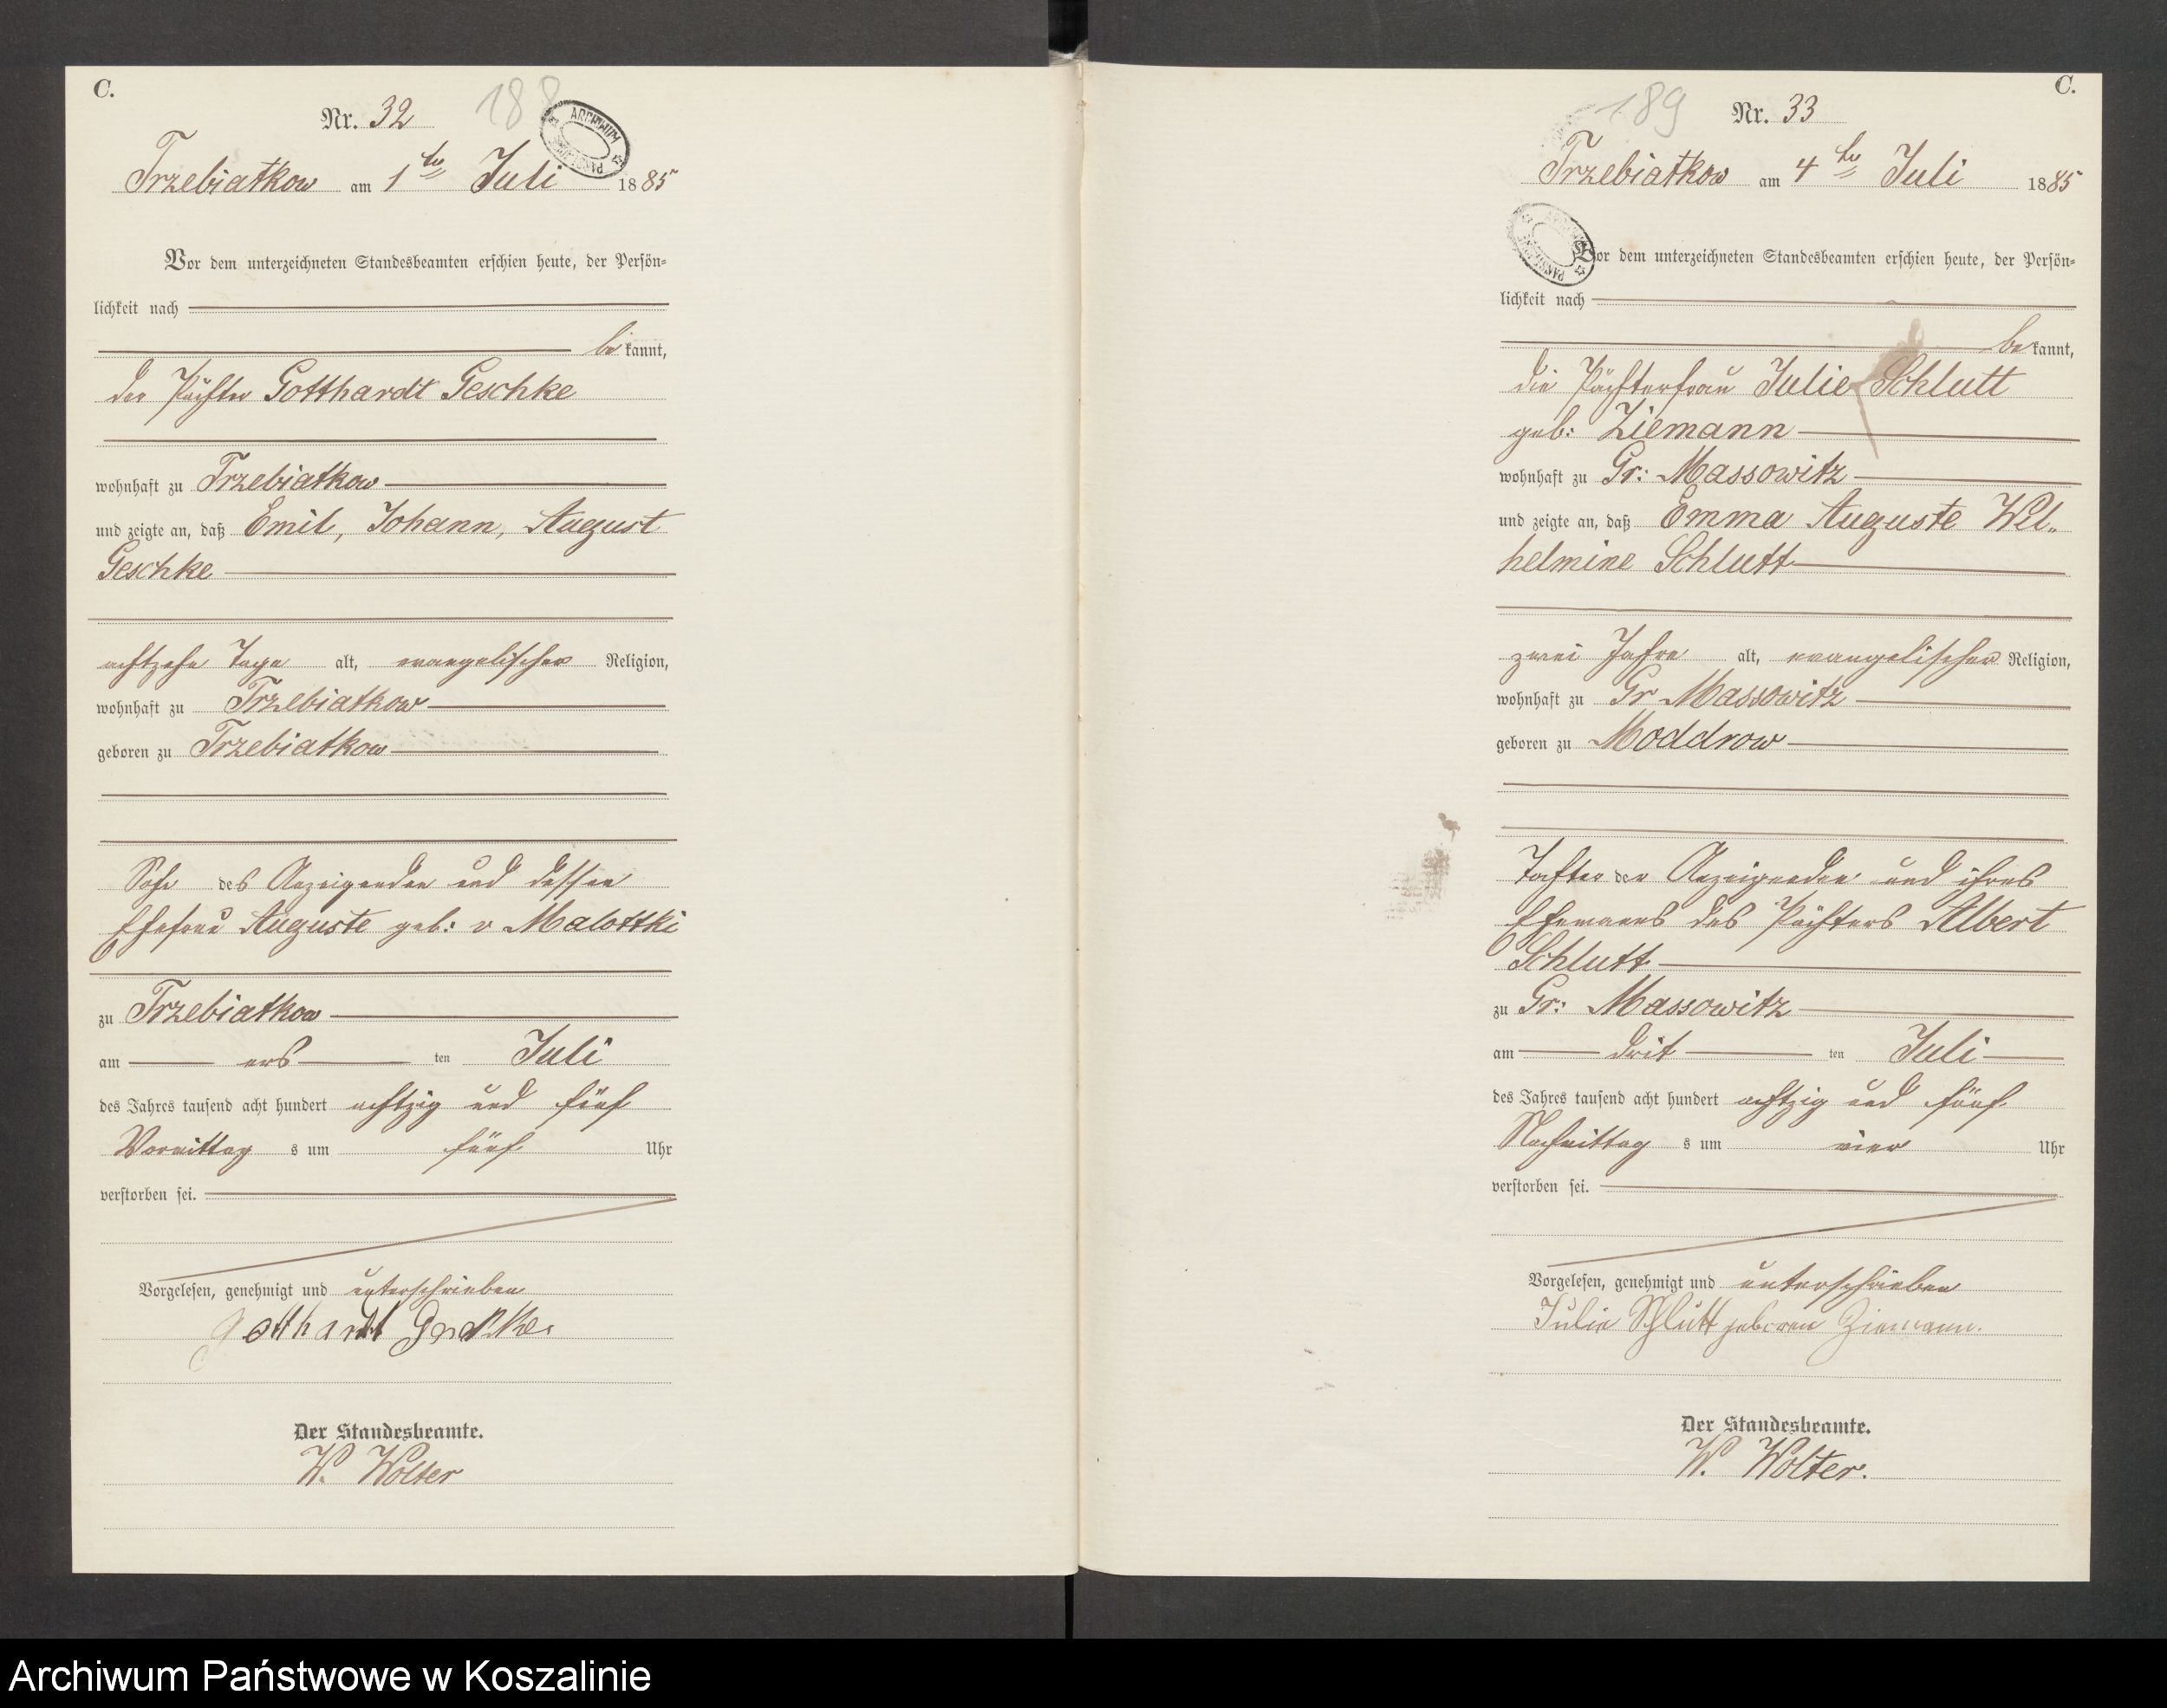 C.
Nr. 32
188
ARCHIWUM
Trzebiatkow am 1ten Juli 1885
Vor dem unterzeichneten Standesbeamten erschien heute, der Persön=
lichkeit nach
bekannt,
der Pächter Gotthardt Geschke
wohnhaft zu Trzebiatkow
und zeigte an, daß Emil, Johann, August
Geschke
achtzehn Tage alt, evangelischer Religion,
wohnhaft zu Trzebiatkow
geboren zu Trzebiatkow
Sohn des Anzeigenden und dessen
Ehefrau Auguste geb: v Malottki
zu Trzebiatkow
am ers ten Juli
des Jahres tausend acht hundert achtzig und fünf
Vormittag s um fünf Uhr
verstorben sei.
Vorgelesen, genehmigt und unterschrieben
Gotthardt Geschke
Der Standesbeamte.
W. Wolter
C.
189
Nr. 33
Trzebiatkow am 4ten Juli 1885
Vor dem unterzeichneten Standesbeamten erschien heute, der Persön=
lichkeit nach
bekannt,
die Pächterfrau Julie Schlutt
geb: Ziemann
wohnhaft zu Gr: Massowitz
und zeigte an, daß Emma Auguste Wil„
helmine Schlutt
zwei Jahre alt, evangelischer Religion,
wohnhaft zu Gr Massowitz
geboren zu Moddrow
Tochter der Anzeigenden und ihres
Ehemanns des Pächters Albert
Schlutt
zu Gr: Massowitz
am drit ten Juli
des Jahres tausend acht hundert achtzig und fünf
Nachmittag s um vier Uhr
verstorben sei.
Vorgelesen, genehmigt und unterschrieben
Julie Schlutt geboren Ziemann.
Der Standesbeamte.
W. Wolter.
Archiwum Państwowe w Koszalinie